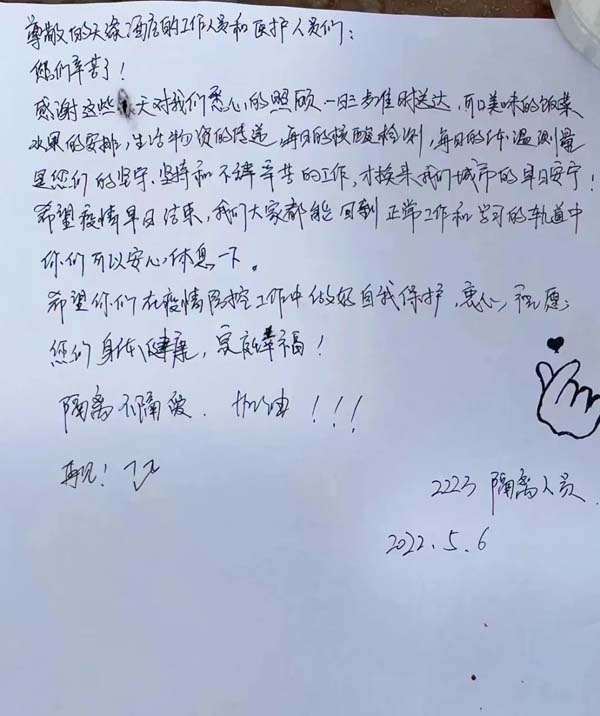 尊敬的天缘酒店的工作人员和医护人员们：
您们辛苦了！
感谢这些天对我们悉心的照顾，一日三餐准时送达，可口美味的饭菜
水果的安排，生活物资的传递，每日的核酸检测，每日的体温测量
是您们的坚守、坚持和不讳辛苦的工作，才换来我们城市的早日安宁！
希望疫情早日结束，我们大家都能回到正常工作和学习的轨道中
你们可以安心休息一下。
希望你们在疫情防控工作中做好自我保护，衷心祝愿：
您们身体健康，家庭幸福！
隔离不隔爱．加油！！！
再见！
2223 隔离人员．
2022.5.6